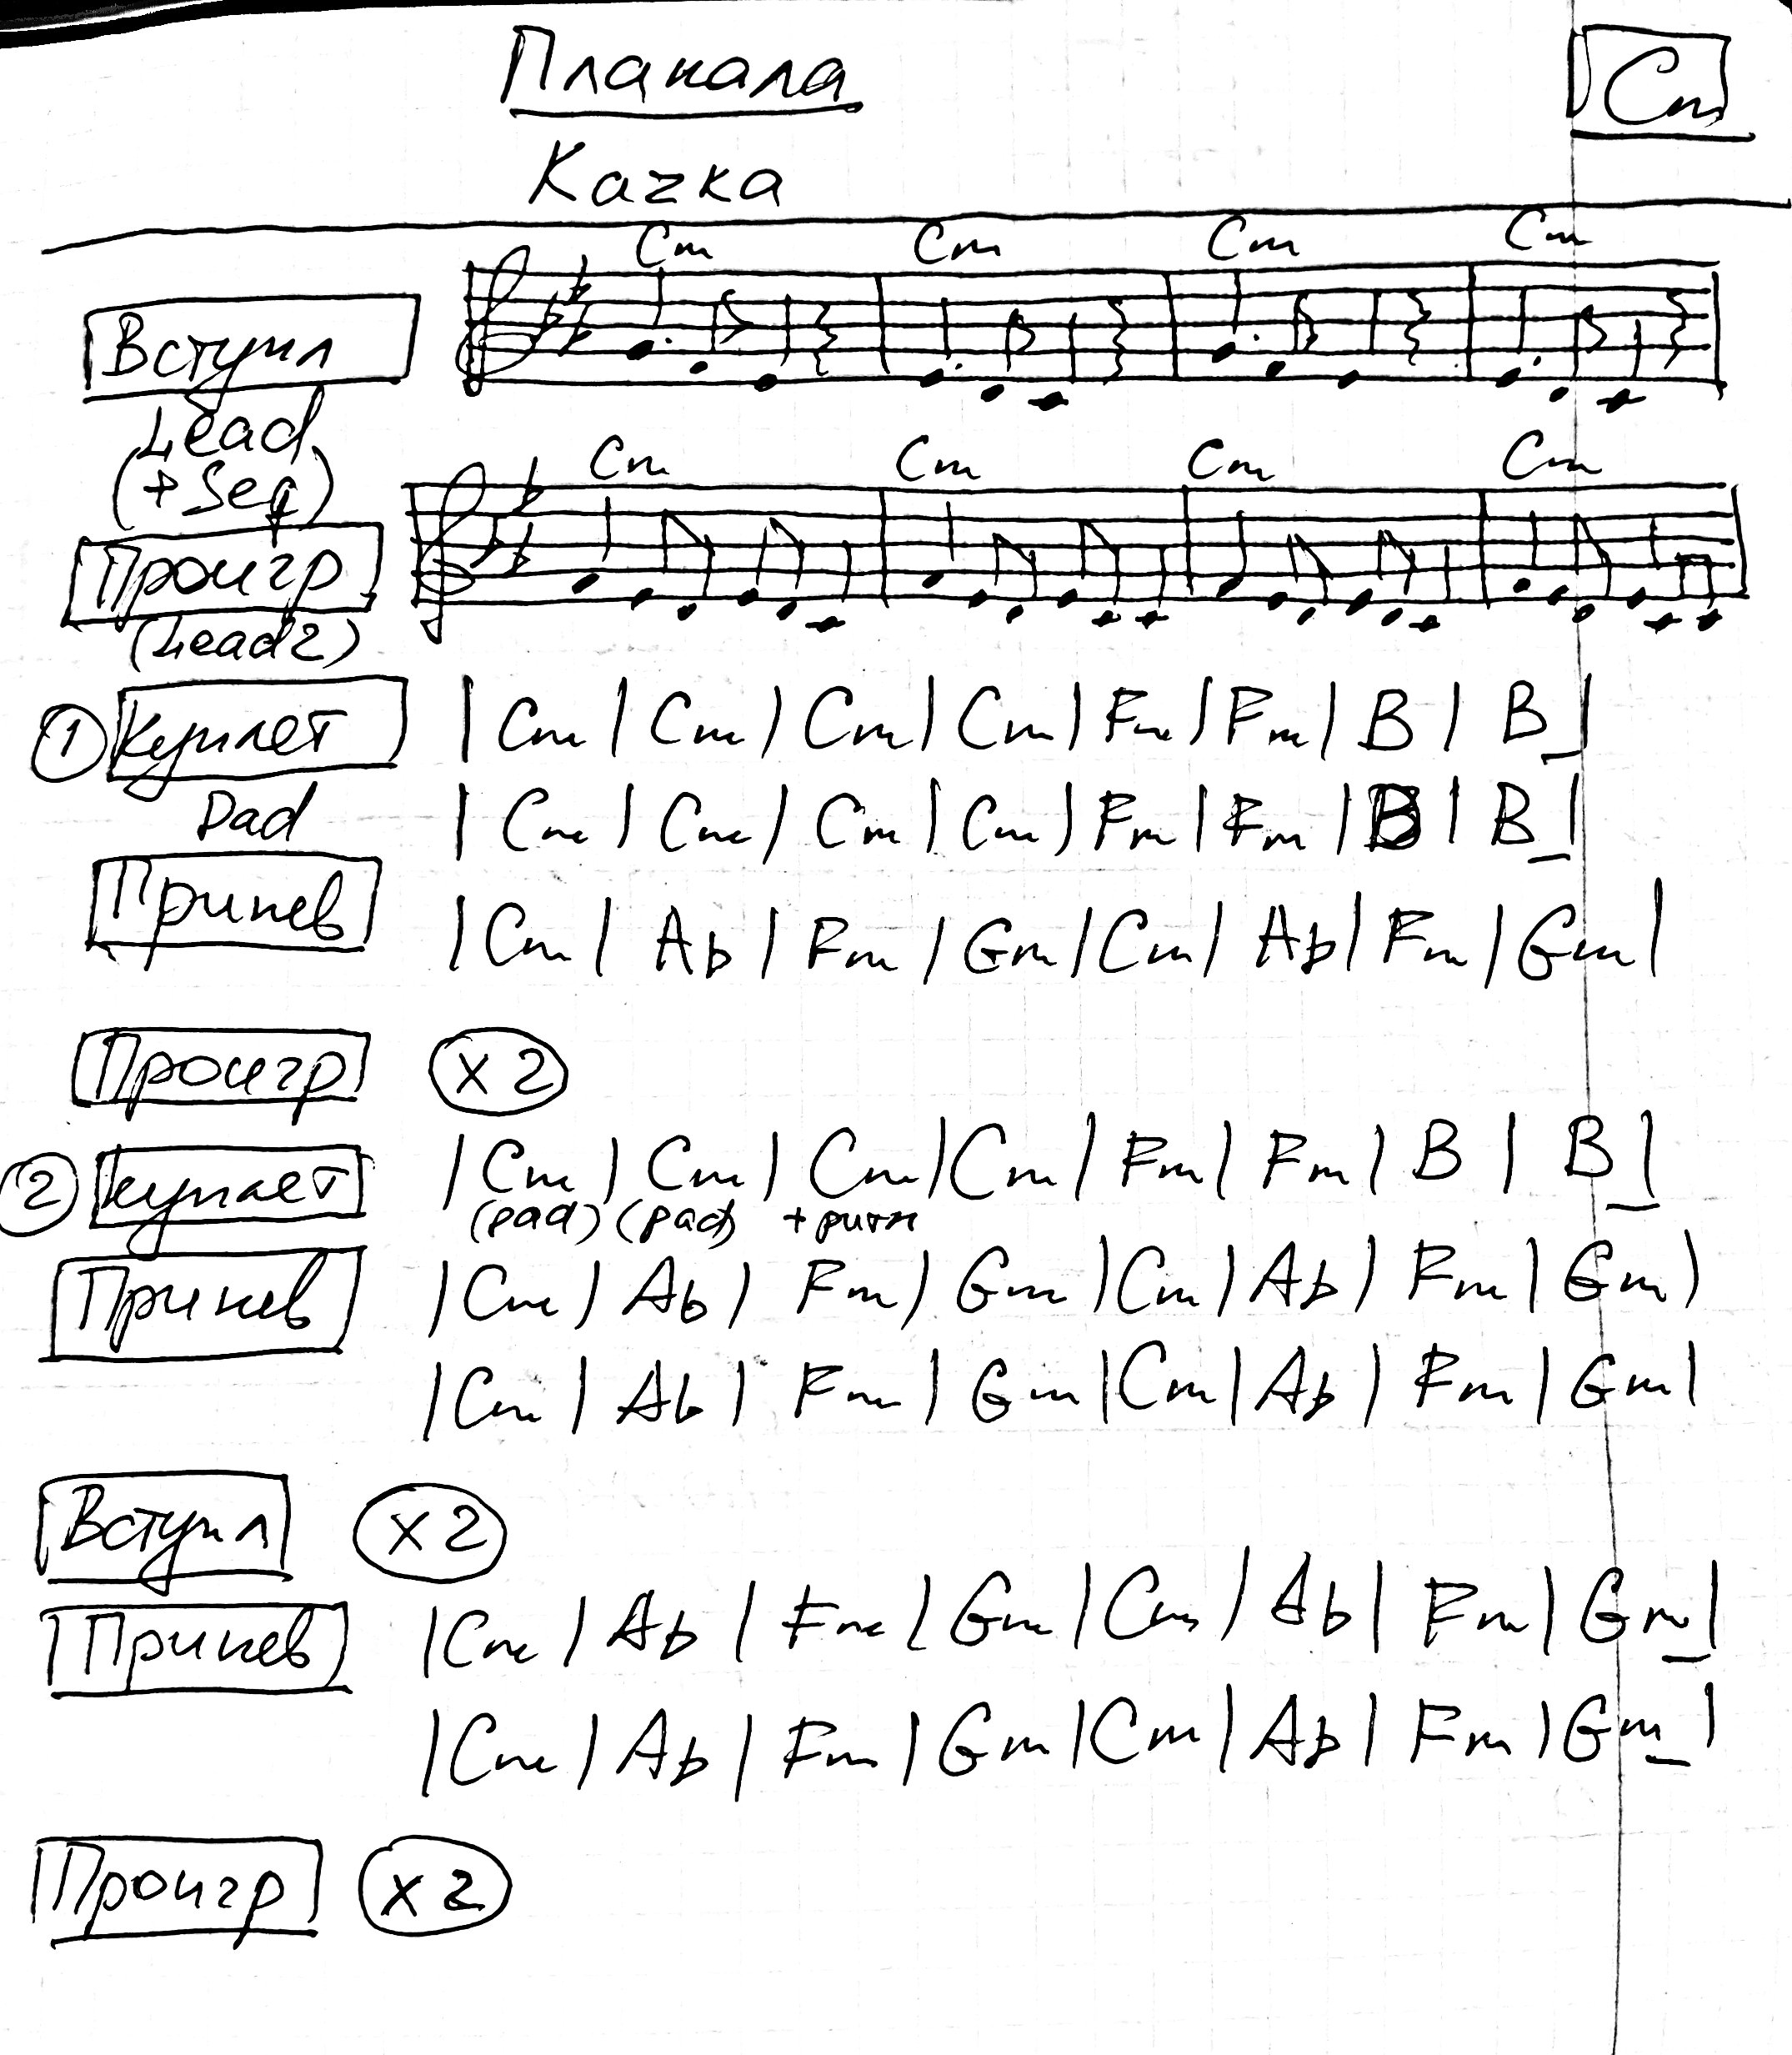 Плакала
Cm
Качка
Cm Cm Cm Cm
Вступл
Lead
(+Seq)
Cm Cm Cm Cm
Проигр
(Lead2)
① Куплет | Cm | Cm | Cm | Cm | Fm | Fm | B | B |
Pad | Cm | Cm | Cm | Cm | Fm | Fm | B | B |
Припев | Cm | Ab | Fm | Gm | Cm | Ab | Fm | Gm |
Проигр x2
② Куплет | Cm | Cm | Cm | Cm | Fm | Fm | B | B |
(pad) (pad) +ритм
Припев | Cm | Ab | Fm | Gm | Cm | Ab | Fm | Gm |
| Cm | Ab | Fm | Gm | Cm | Ab | Fm | Gm |
Вступл x2
Припев | Cm | Ab | Fm | Gm | Cm | Ab | Fm | Gm |
| Cm | Ab | Fm | Gm | Cm | Ab | Fm | Gm |
Проигр x2